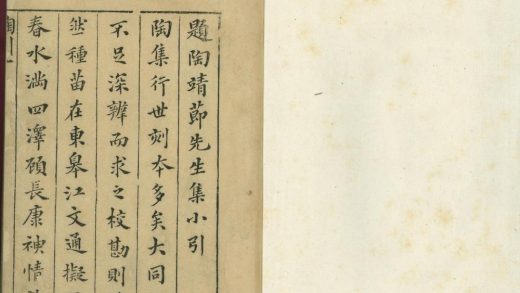 題陶靖節先生集小引
陶集行世刻本多矣大同
不足深辨而求之校勘則
然種苗在東皋江文通擬
春水満四澤顧長康神情